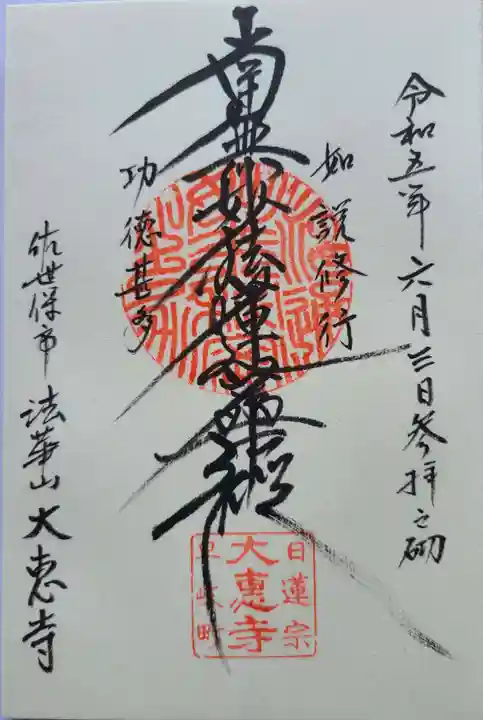 令和五年六月三日参拝之砌
如説修行
南無妙法蓮華経
功徳甚多
佐世保市 法華山 大恵寺
日蓮宗
大恵寺
早岐町